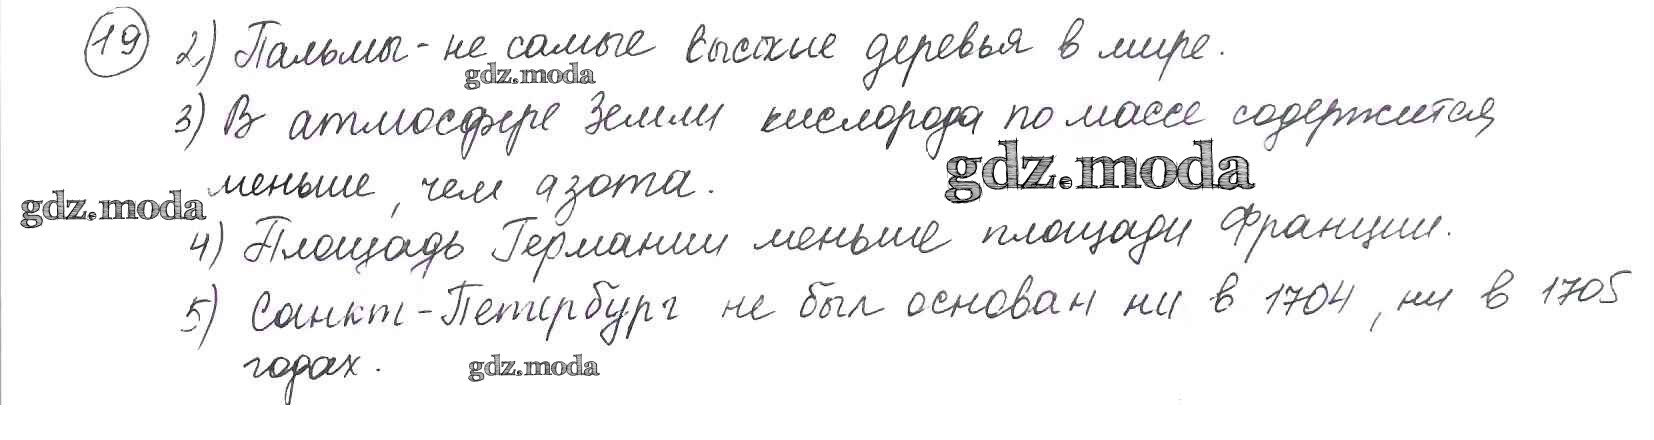 19 2) Пальмы - не самые высокие деревья в мире.
gdz.moda
3) В атмосфере Земли кислорода по массе содержится
gdz.moda
меньше, чем азота.
gdz.moda
4) Площадь Германии меньше площади Франции.
5) Санкт-Петербург не был основан ни в 1704, ни в 1705
годах.
gdz.moda